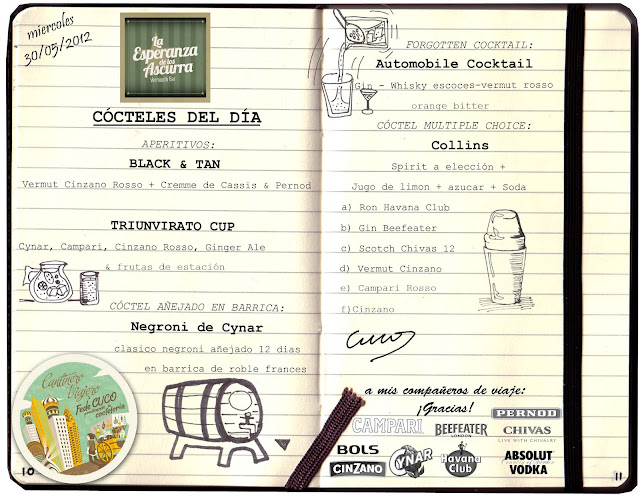 miercoles
30/05/2012
La
Esperanza
de los
Ascurra
Vermouth Bar
CÓCTELES DEL DÍA
APERITIVOS:
BLACK & TAN
Vermut Cinzano Rosso + Cremme de Cassis & Pernod
TRIUNVIRATO CUP
Cynar, Campari, Cinzano Rosso, Ginger Ale
& frutas de estación
CÓCTEL AÑEJADO EN BARRICA:
Negroni de Cynar
clasico negroni añejado 12 dias
en barrica de roble frances
Cantinero
Viajero
Fede CUCO
coctelería
10
FORGOTTEN COCKTAIL:
Automobile Cocktail
Gin - Whisky escoces-vermut rosso
orange bitter
CÓCTEL MULTIPLE CHOICE:
Collins
Spirit a elección +
Jugo de limon + azucar + Soda
a) Ron Havana Club
b) Gin Beefeater
c) Scotch Chivas 12
d) Vermut Cinzano
e) Campari Rosso
f)Cinzano
CUCO
a mis compañeros de viaje:
¡Gracias!
CAMPARI
BEEFEATER
LONDON
PERNOD
CHIVAS
LIVE WITH CHIVALRY
BOLS
CINZANO
CYNAR
Havana
Club
ABSOLUT
VODKA
11